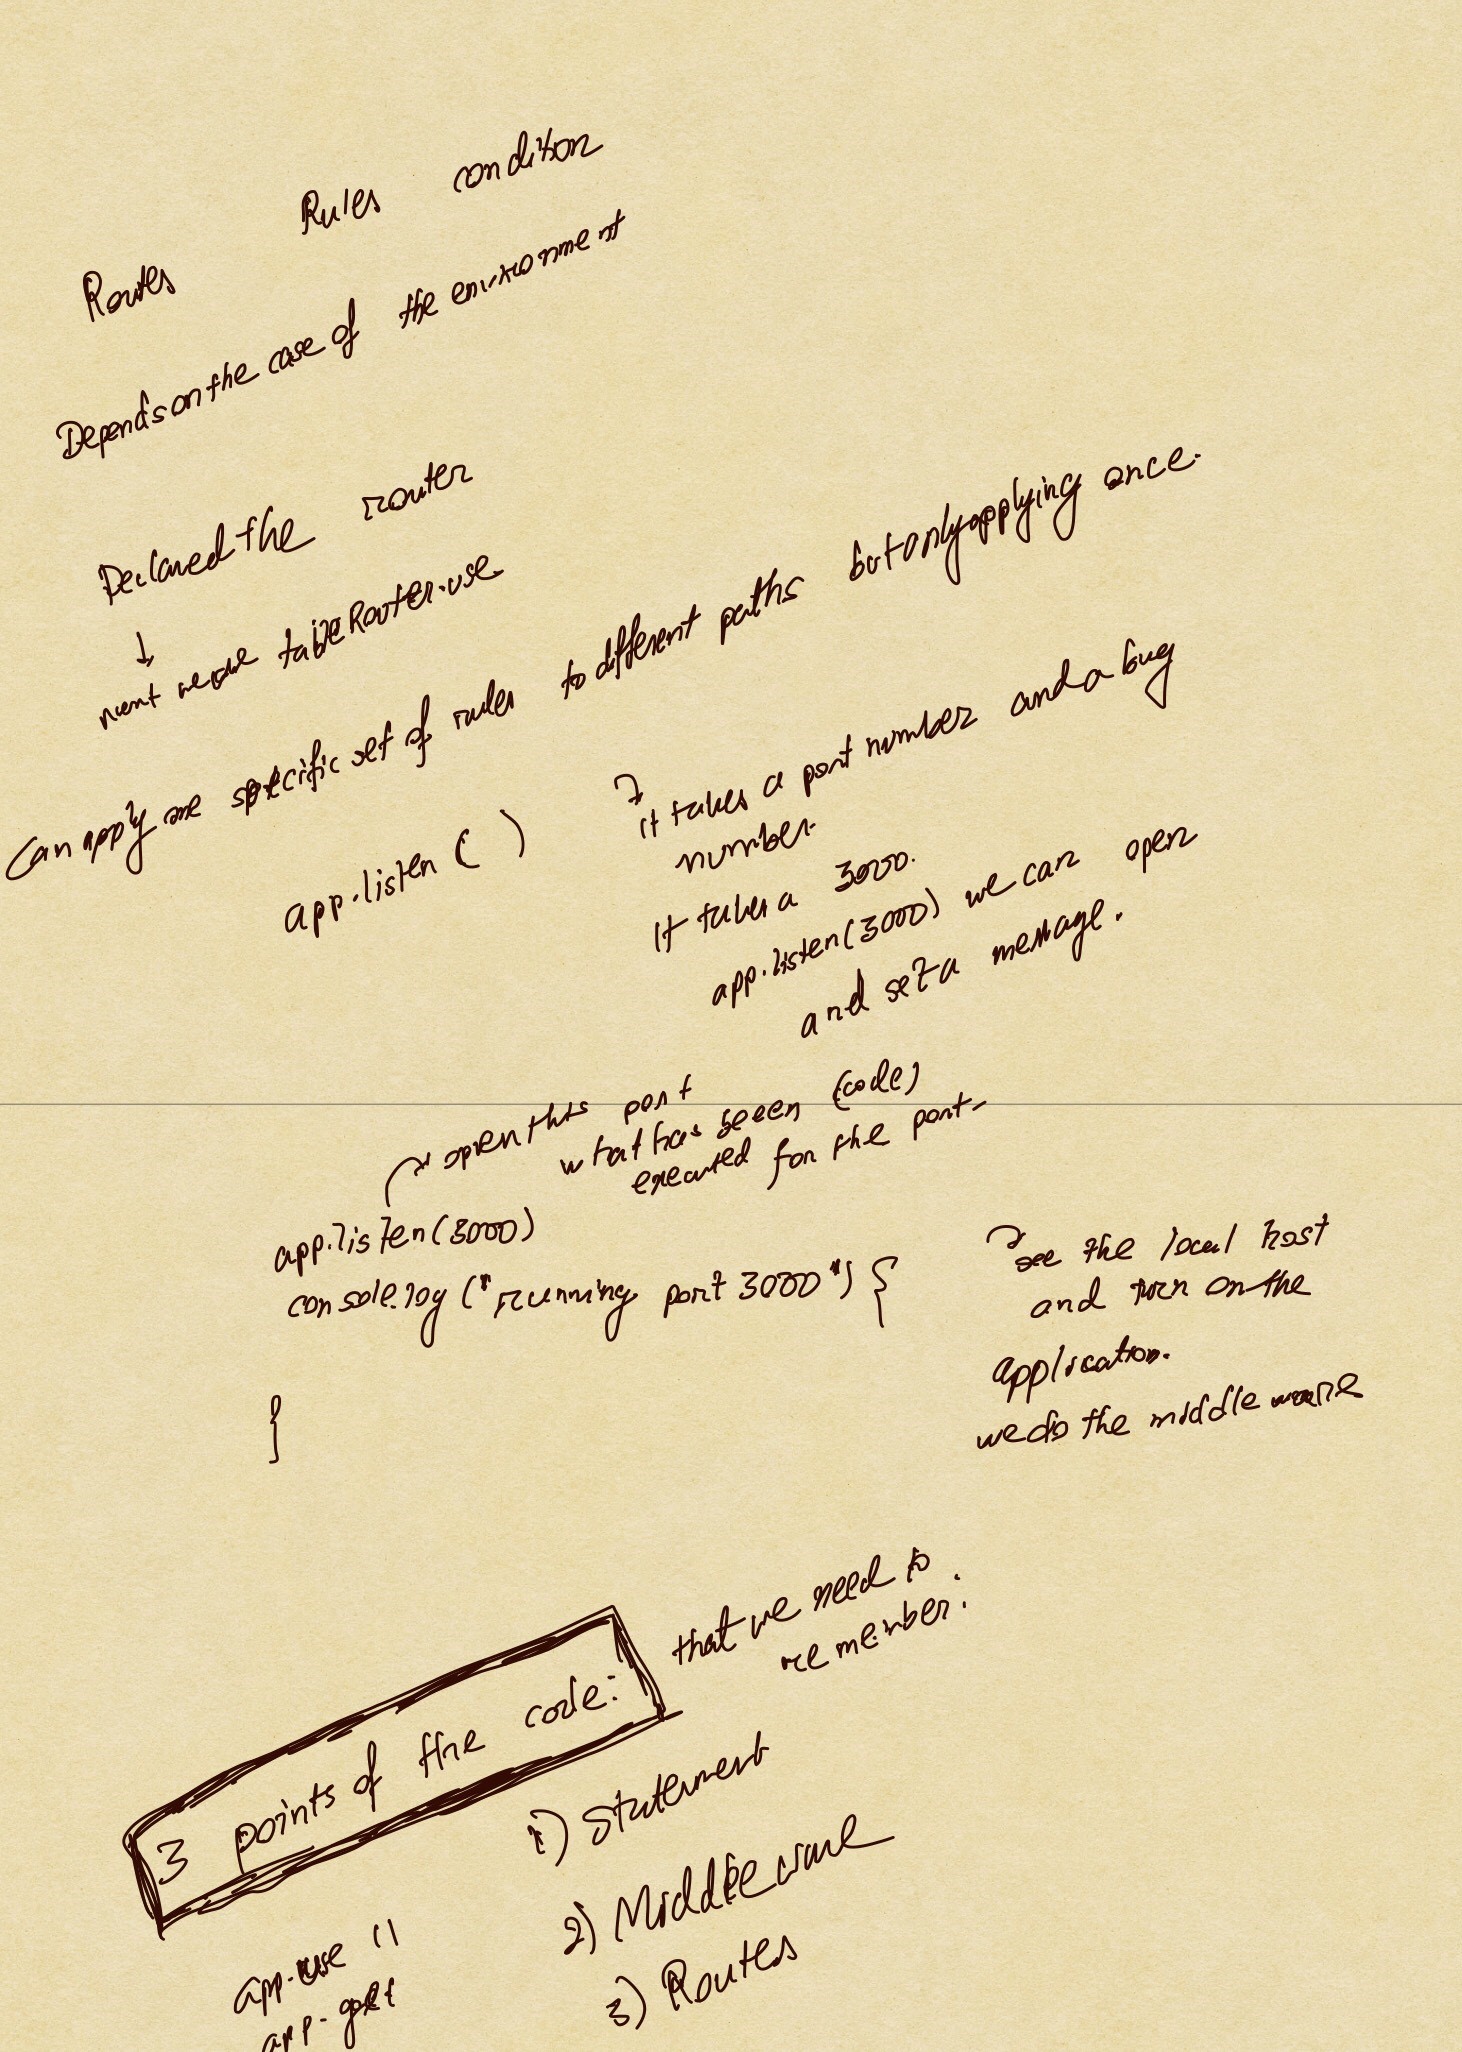 Routes Rules condition
Depends on the case of the environment
Declared the router
↓
we use table Router.use
Can apply one specific set of rules to different paths but only applying once.
app.listen ( )
it takes a port number and a bug
number.
It takes a 3000.
app.listen(3000) we can open
and set a message.
open this port
what has been (code)
executed for the port-
app.listen(3000)
console.log ("running port 3000") {
}
see the local host
and turn on the
application.
we do the middle ware
3 points of the code:
that we need to
remember:
1) Statement
2) Middleware
3) Routes
app.use ()
app.get